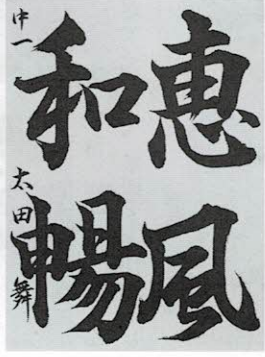 恵風
和暢
中一 太田舞